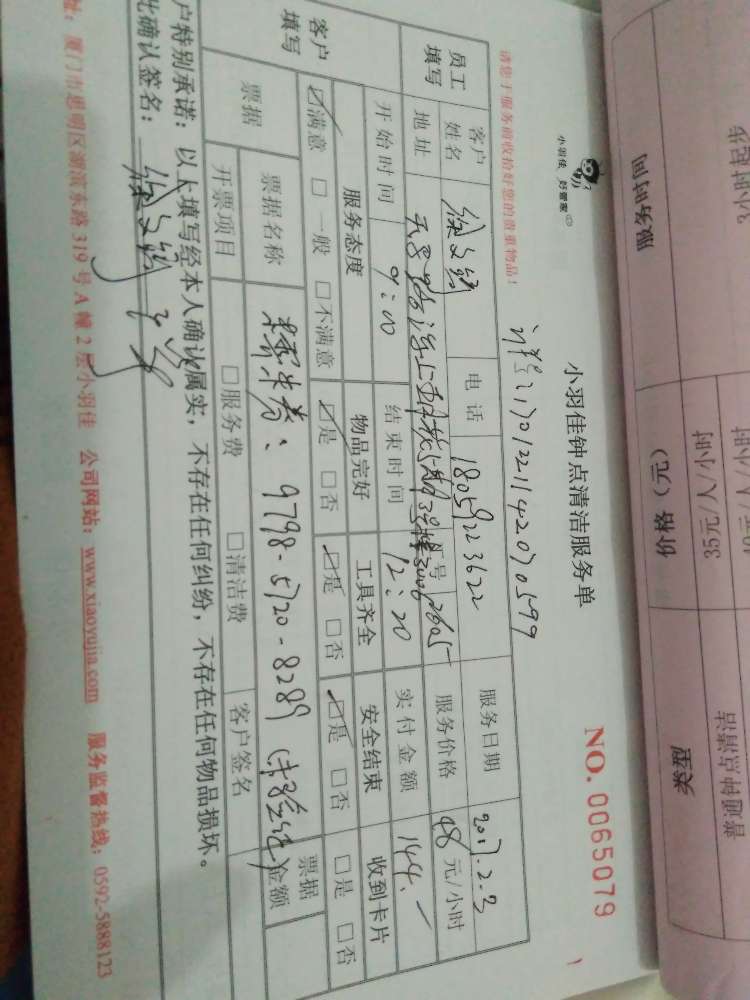 服务时间 价格（元） 类型
3小时起步 35元/人/小时 普通钟点清洁
小羽佳 好管家
小羽佳钟点清洁服务单
NO. 0065079
请您于服务前收拾好您的贵重物品！
员工填写
客户姓名 电话 18059223622 服务日期 2017.2.3
地址 工号 2605 服务价格 48 元/小时
开始时间 9:00 结束时间 12:20 实付金额 144.-
客户填写
服务态度 物品完好 工具齐全 安全结束 收到卡片
☑满意 □一般 □不满意 ☑是 □否 ☑是 □否 ☑是 □否 □是 □否
票据 票据名称 9798-5720-8289 票据金额
开票项目 □服务费 □清洁费 客户签名
户特别承诺：以上填写经本人确认属实，不存在任何纠纷，不存在任何物品损坏。
此确认签名：
址：厦门市思明区湖滨东路319号A幢2层小羽佳 公司网站：www.xiaoyujia.com 服务监督热线：0592-5888123